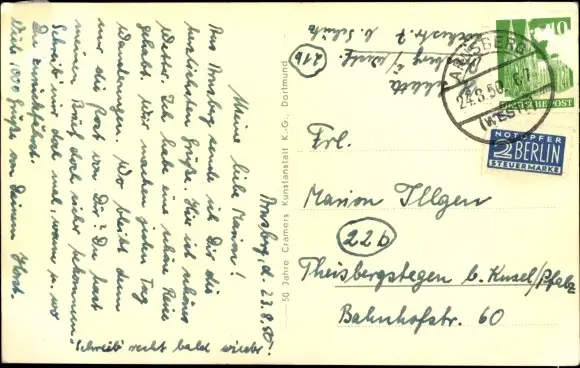 Arnsberg, d. 23.8.50.
Meine liebe Marion!
Aus Arnsberg sende ich Dir die
herzlichsten Grüße. Hier ist schönes
Wetter. Ich habe eine schöne Reise
gehabt. Wir machen jeden Tag
Wanderungen. Wo bleibt denn
nur die Post von Dir? Du hast
meinen Brief doch sicher bekommen.
Schreib mir doch mal, wann u. wo
Du zurückfährst.
Viele 1000 Grüße von Deinem Horst.
Schreib' recht bald wieder!
50 Jahre Cramers Kunstanstalt K.-G., Dortmund
b. Schütz
21b
ARNSBERG
24.8.50
(WESTF)
10
DEUTSCHE POST
NOTOPFER
2 BERLIN
STEUERMARKE
Frl.
Marion Illgen
22b
Theisbergstegen b. Kusel/Pfalz
Bahnhofstr. 60